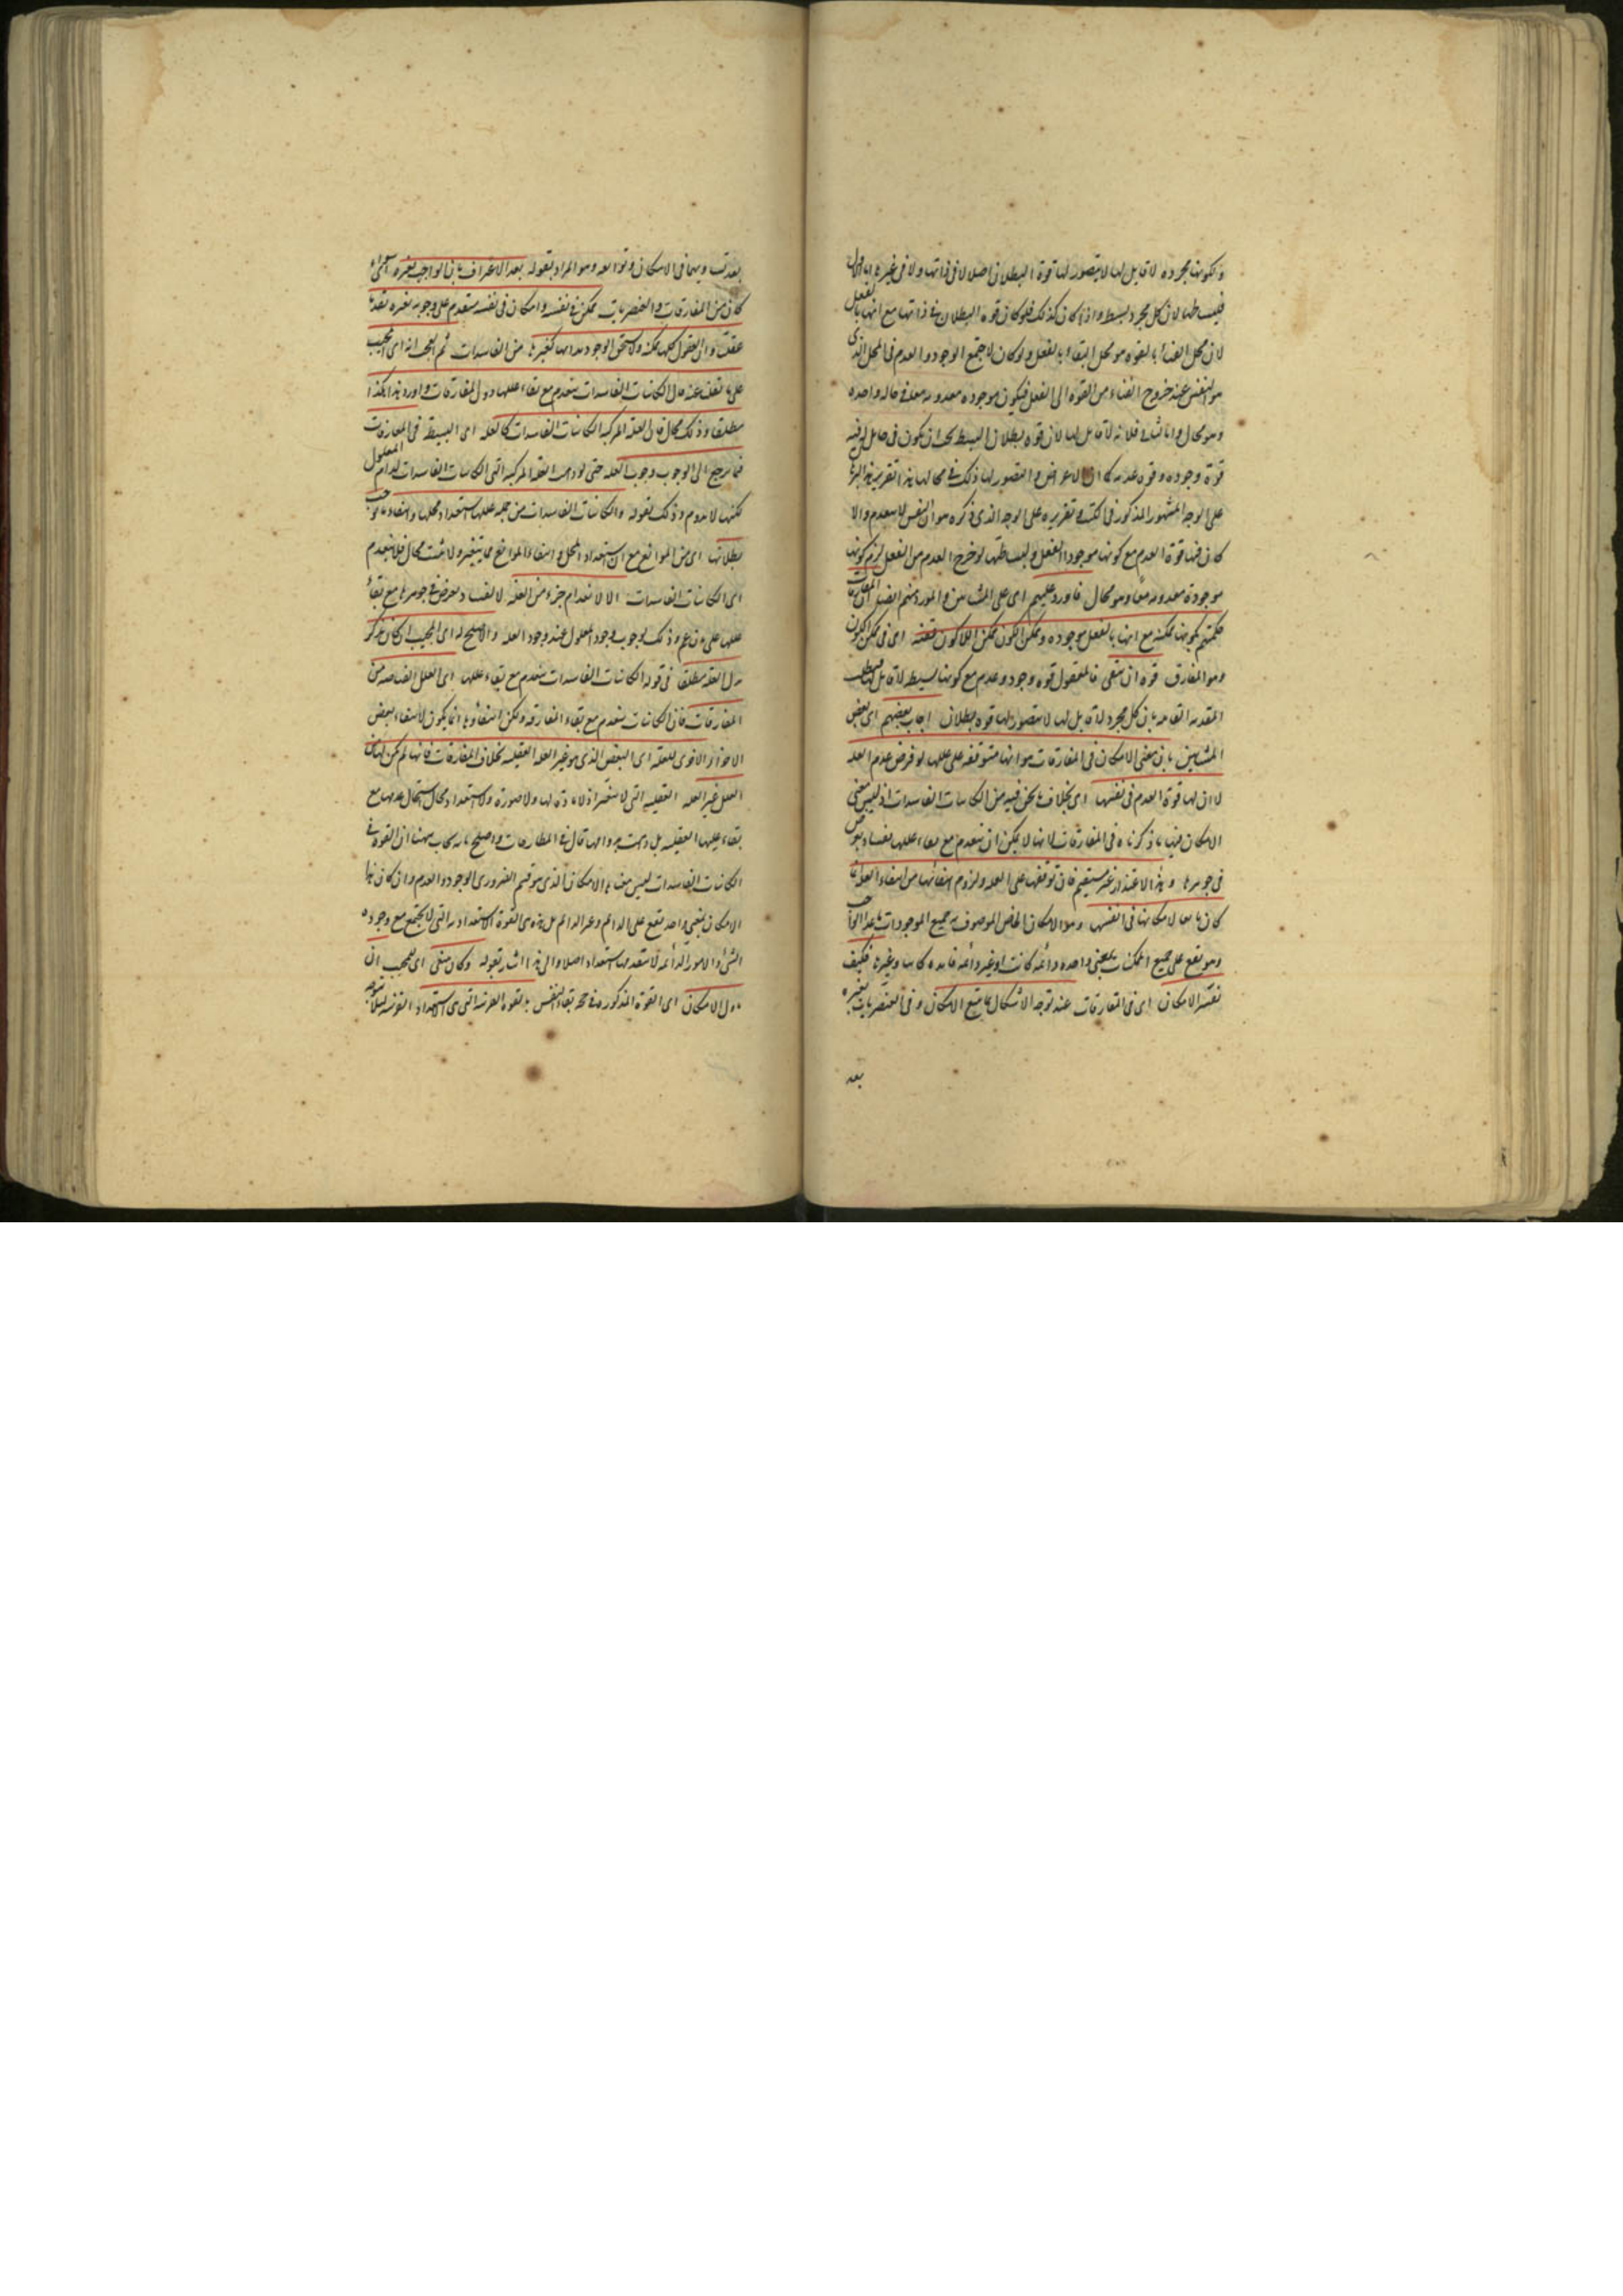 ولكونها مجردة لا قابل لها لا يتصور لها قوة البطلان اصلا لا في ذاتها ولا في غيرها
فلبساطتها لان كل مجرد بسيط واذا كان كذلك فلو كان قوة البطلان في ذاتها مع انها بالفعل
لان محل الفناء بالقوة هو محل البقاء بالفعل ولو كان لاجتمع الوجود والعدم في المحل الذي
هو النفس عند خروج الفناء من القوة الى الفعل فيكون موجودة معدومة معا في حالة واحدة
وهو محال واما الثاني فلانه لا قابل لها لان قوة بطلان البسيط يجب ان يكون في حامل له فيه
قوة وجوده وقوة عدمه كالاعراض والصور لها ذلك في محالها هذا تقرير هذا
على الوجه المشهور المذكور في الكتب وتقريره على الوجه الذي ذكره هو ان النفس لا تنعدم والا
كان فيها قوة العدم مع كونها موجودة بالفعل ولبساطتها لو خرج العدم من الفعل لزم كونها
موجودة معدومة معا وهو محال فاورد عليهم اى على المشائين والمورد منهم ايضا ان المفارقات
حكمتم بكونها ممكنة مع انها بالفعل موجودة وممكن الكون ممكن اللاكون فعنه اى في ممكن الكون
وهو المفارق قوة ان يبقى فالعقول قوة وجود وعدم مع كونها بسيطة لا قابل لها
المقدمة القائلة بان كل مجرد لا قابل لها لا يتصور لها قوة بطلان اجاب بعضهم اى بعض
المشائين بان معنى الامكان في المفارقات هو انها متوقفة على عللها لو فرض عدم العلة
لا ان لها قوة العدم في نفسها اى بخلاف ما نحن فيه من الكاينات الفاسدات اذ ليس معنى
الامكان فيها ما ذكرناه في المفارقات لانها لا يمكن ان تنعدم مع بقاء عللها لفساد يعرض
في جوهرها وهذا الاعتذار غير مستقيم فان توقفها على العلة ولزوم انتفائها من انتفاء العلة انما
كان تابعا لامكانها في انفسها وهو الامكان الخاص الموصوف به جميع الموجودات ما عدا الواجب
وهو يقع على جميع الممكنات بمعنى واحد دائمة كانت او غير دائمة فاسدة كانت وغيرها فكيف
نفسر الامكان اى في المفارقات عند توجه الاشكال بما يتبع الامكان وفي العنصريات بغيره
بعد
بعد تسويتهما في الامكان وتوابعه وهو المراد بقوله بعد الاعتراف بان الواجب بغيره
كان من المفارقات والعنصريات ممكن في نفسه وامكان في نفسه متقدم على وجوبه بغيره تقدما
عقليا وان العقول كلها ممكنة ولا تستحق الوجود بذاتها كغيرها من الفاسدات ثم العجب انه اى المجيب
على ما نقلت عنه قال الكاينات الفاسدات تنعدم مع بقاء عللها دون المفارقات واورد هذا هكذا
مطلقا وذلك محال فان العلة المركبة الكاينات الفاسدات كالعلة اى البسيطة في المفارقات
فيما يرجع الى الوجوب وجوب العلة حتى لو دامت العلة المركبة التي الكاينات الفاسدات لدام المعلول
لكنها لا تدوم وذلك لقوله والكاينات الفاسدات من جملة عللها استعداد محلها وانتفاء ما يوجب
بطلانها اى من الموانع مع ان استعداد المحل وانتفاء الموانع مما يتغير ولا يثبت بحال فلا تنعدم
اى الكاينات الفاسدات الا لانعدام جزء من العلة لا لفساد يعرض في جوهرها مع بقاء
عللها على ما زعم وذلك لوجوب وجود المعلول عند وجود العلة والاصلح له اى للمجيب ان كان يذكر
بدل العلة مطلقا في قوله الكاينات الفاسدات تنعدم مع بقاء عللها اى العلل الفياضة من
المفارقات فان الكاينات تنعدم مع بقاء المفارقة ولكن انتفاؤها انما يكون لانتفاء بعض
الاجزاء الاخرى للعلة اى البعض الذي هو غير العلة العقلية بخلاف المفارقات فانها لم يكن لها من
العلل غير العلة العقلية التي لا يتغير اذ لا مادة لها ولا صورة ولا استعداد محال استحال عدمها مع
بقاء عللها العقلية بل دامت بدوامها قال في المطارحات واصلح ما يجاب به ههنا ان القوة في
الكاينات الفاسدات ليس معناها الامكان الذي هو قسيم الضروري الوجود والعدم وان كان هذا
الامكان بمعنى واحد يقع على الدائم وغير الدائم بل هذه هي القوة الاستعدادية التي لا يجتمع مع وجود
الشيء والامور الدائمة لا يتقدمها استعداد اصلا والى هذا اشار بقوله وكان ينبغى اى للمجيب ان
يأول الامكان اى القوة المذكورة في حجة بقاء النفس بالقوة القريبة التي هي الاستعداد